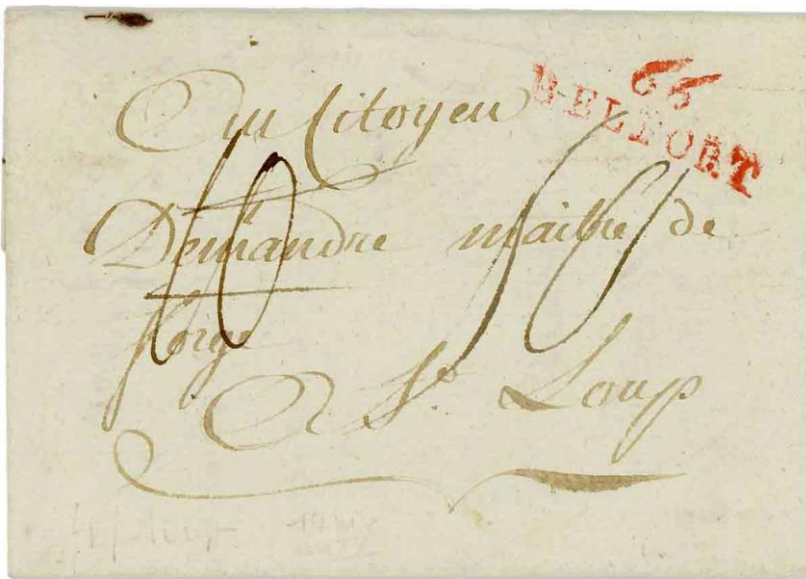 66
BELFORT
Au Citoyen
Demandre maitre de
forge
A St. Loup